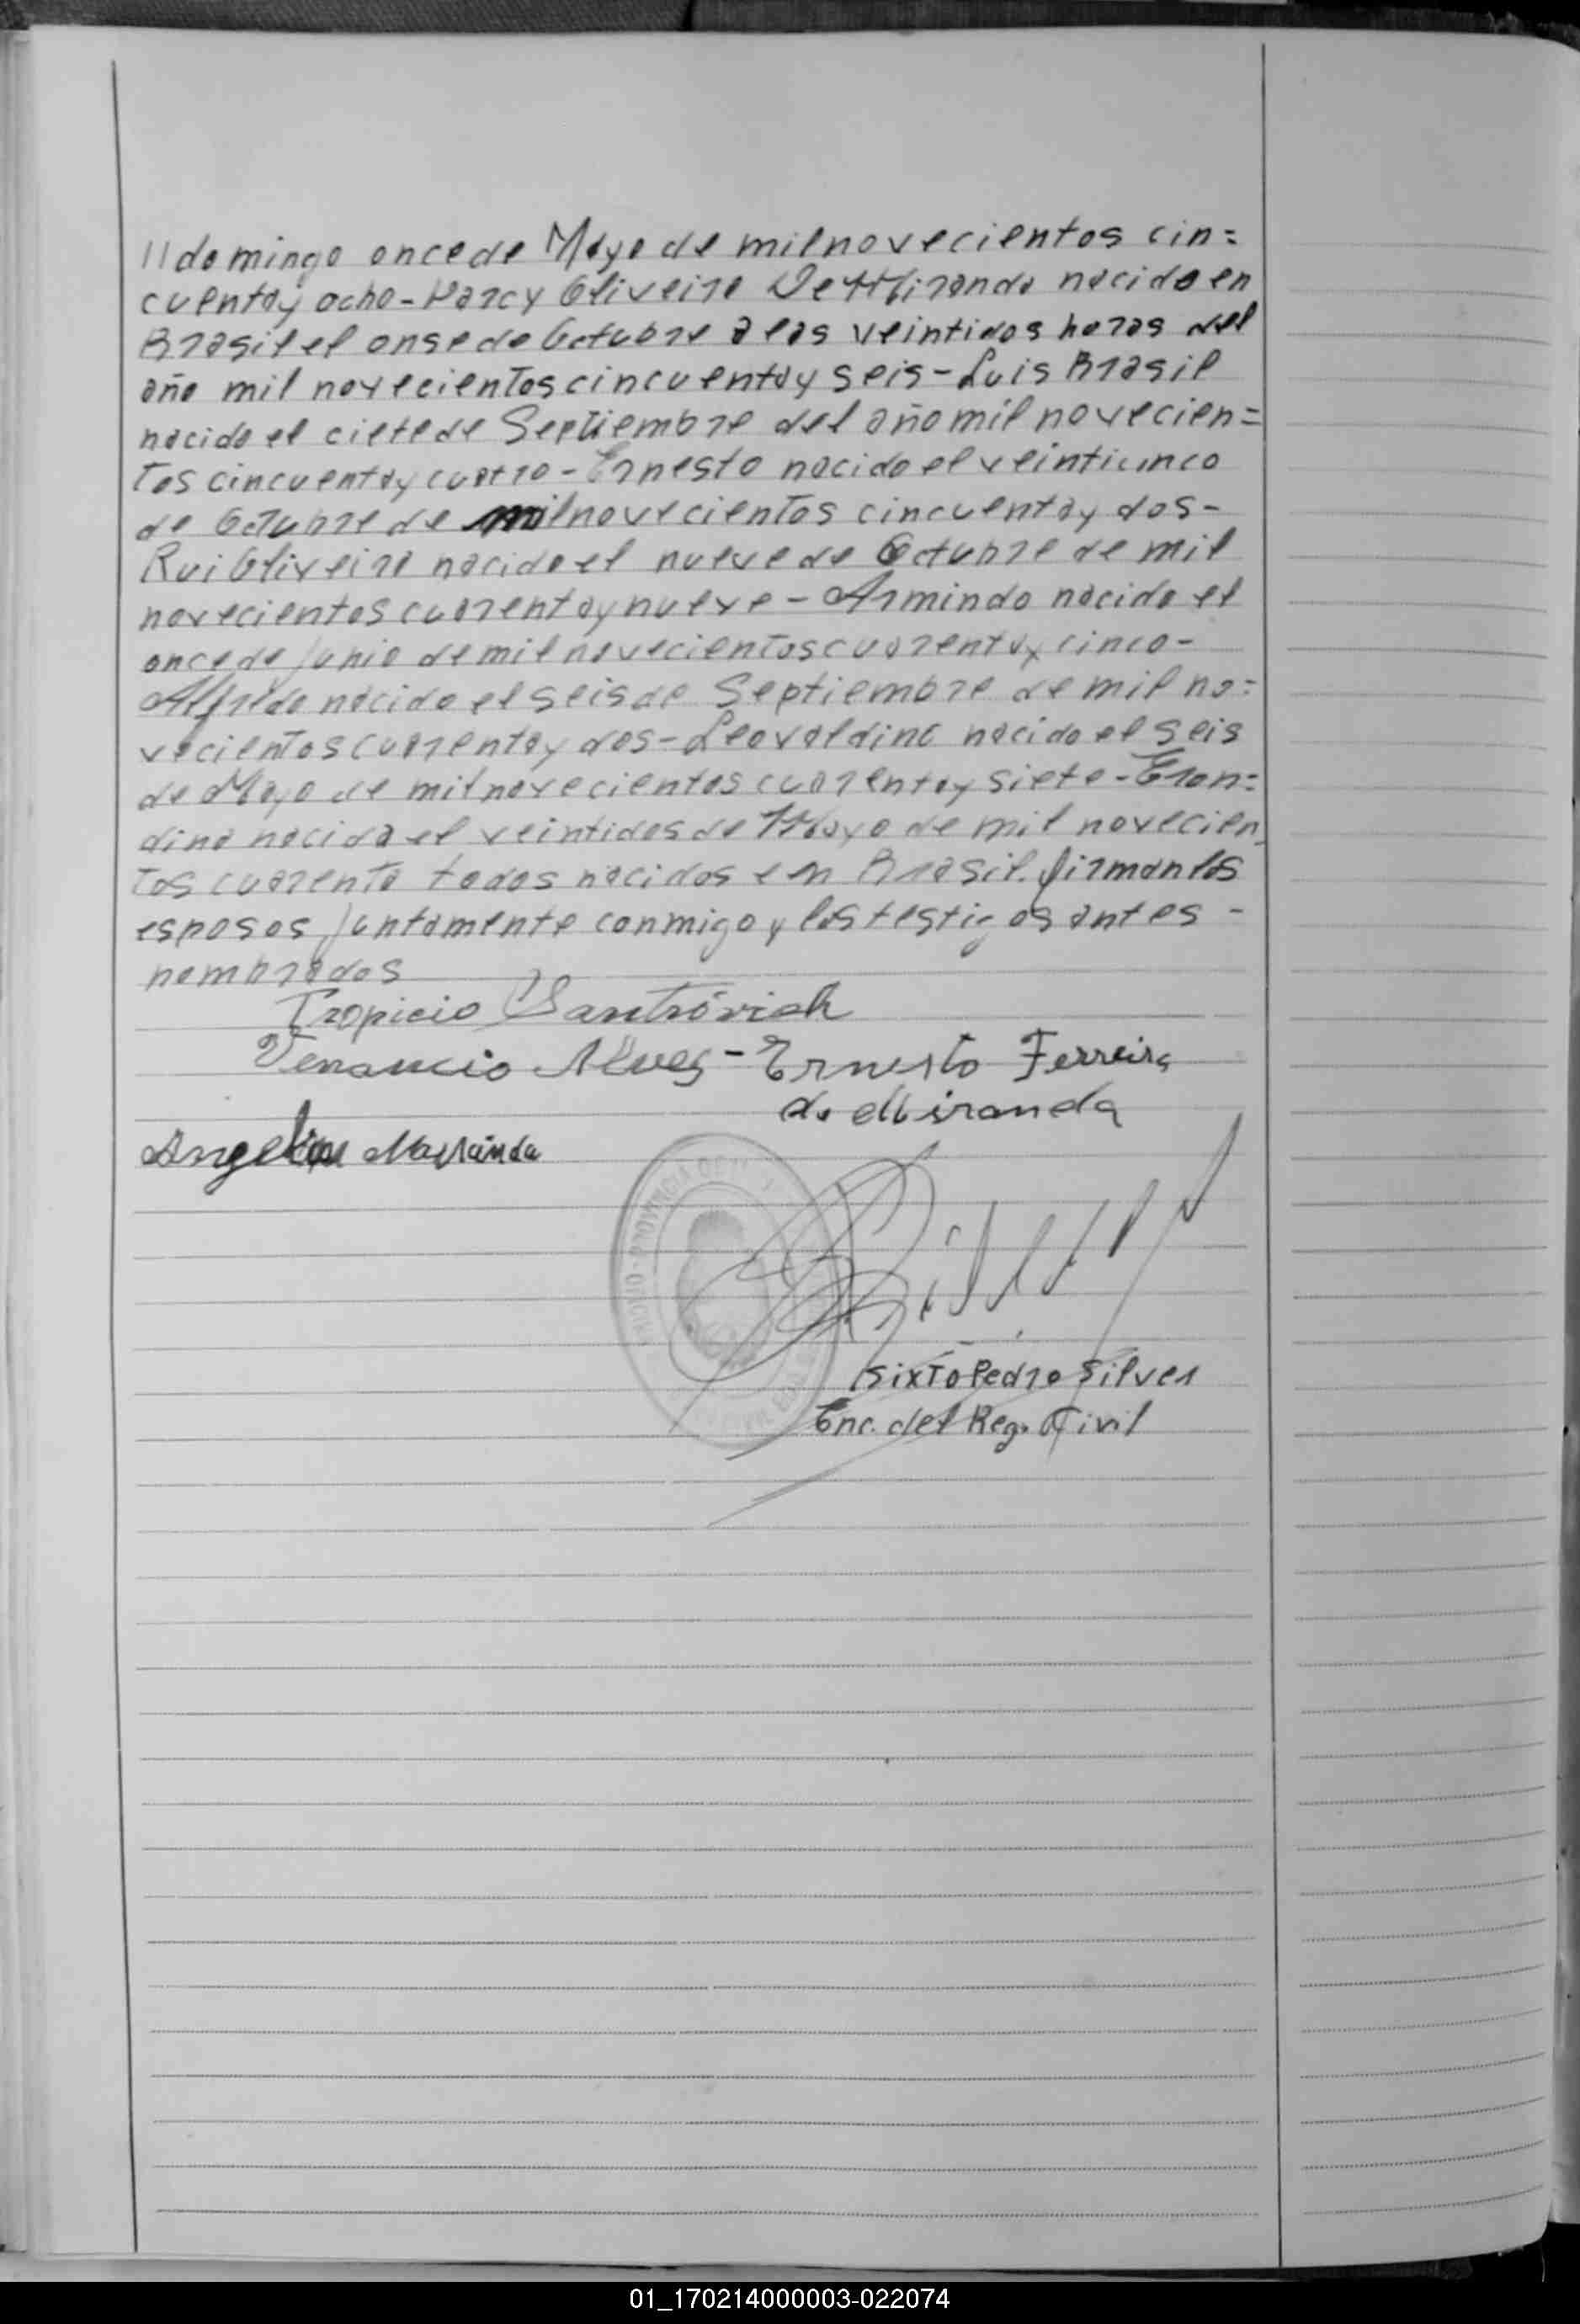 // domingo once de Mayo de mil novecientos cin=
cuentay ocho - Darcy Oliveira De Miranda nacido en
Brasil el onse de Octubre a las veintidos horas del
año mil novecientos cincuentay seis - Luis Brasil
nacido el ciete de Septiembre del año mil novecien=
tos cincuentay cuatro - Ernesto nacido el veinticinco
de Octubre de mil novecientos cincuentay dos -
Rui Oliveira nacido el nueve de Octubre de mil
novecientos cuarentay nueve - Armindo nacido el
once de Junio de mil novecientos cuarentay cinco -
Alfredo nacido el seis de Septiembre de mil no=
vecientos cuarentay dos - Leovaldina nacido el seis
de Mayo de mil novecientos cuarentay siete - Eron=
dina nacida el veintidos de Mayo de mil novecien
tos cuarenta todos nacidos en Brasil. firman los
esposos juntamente conmigo y los testigos antes -
nombrados
Tropicio Santróvich
Venancio Alves - Ernesto Ferreira
de Miranda
Angelina
PROVINCIA DE
Sixto Pedro Silver
Enc. del Reg. Civil
01_170214000003-022074